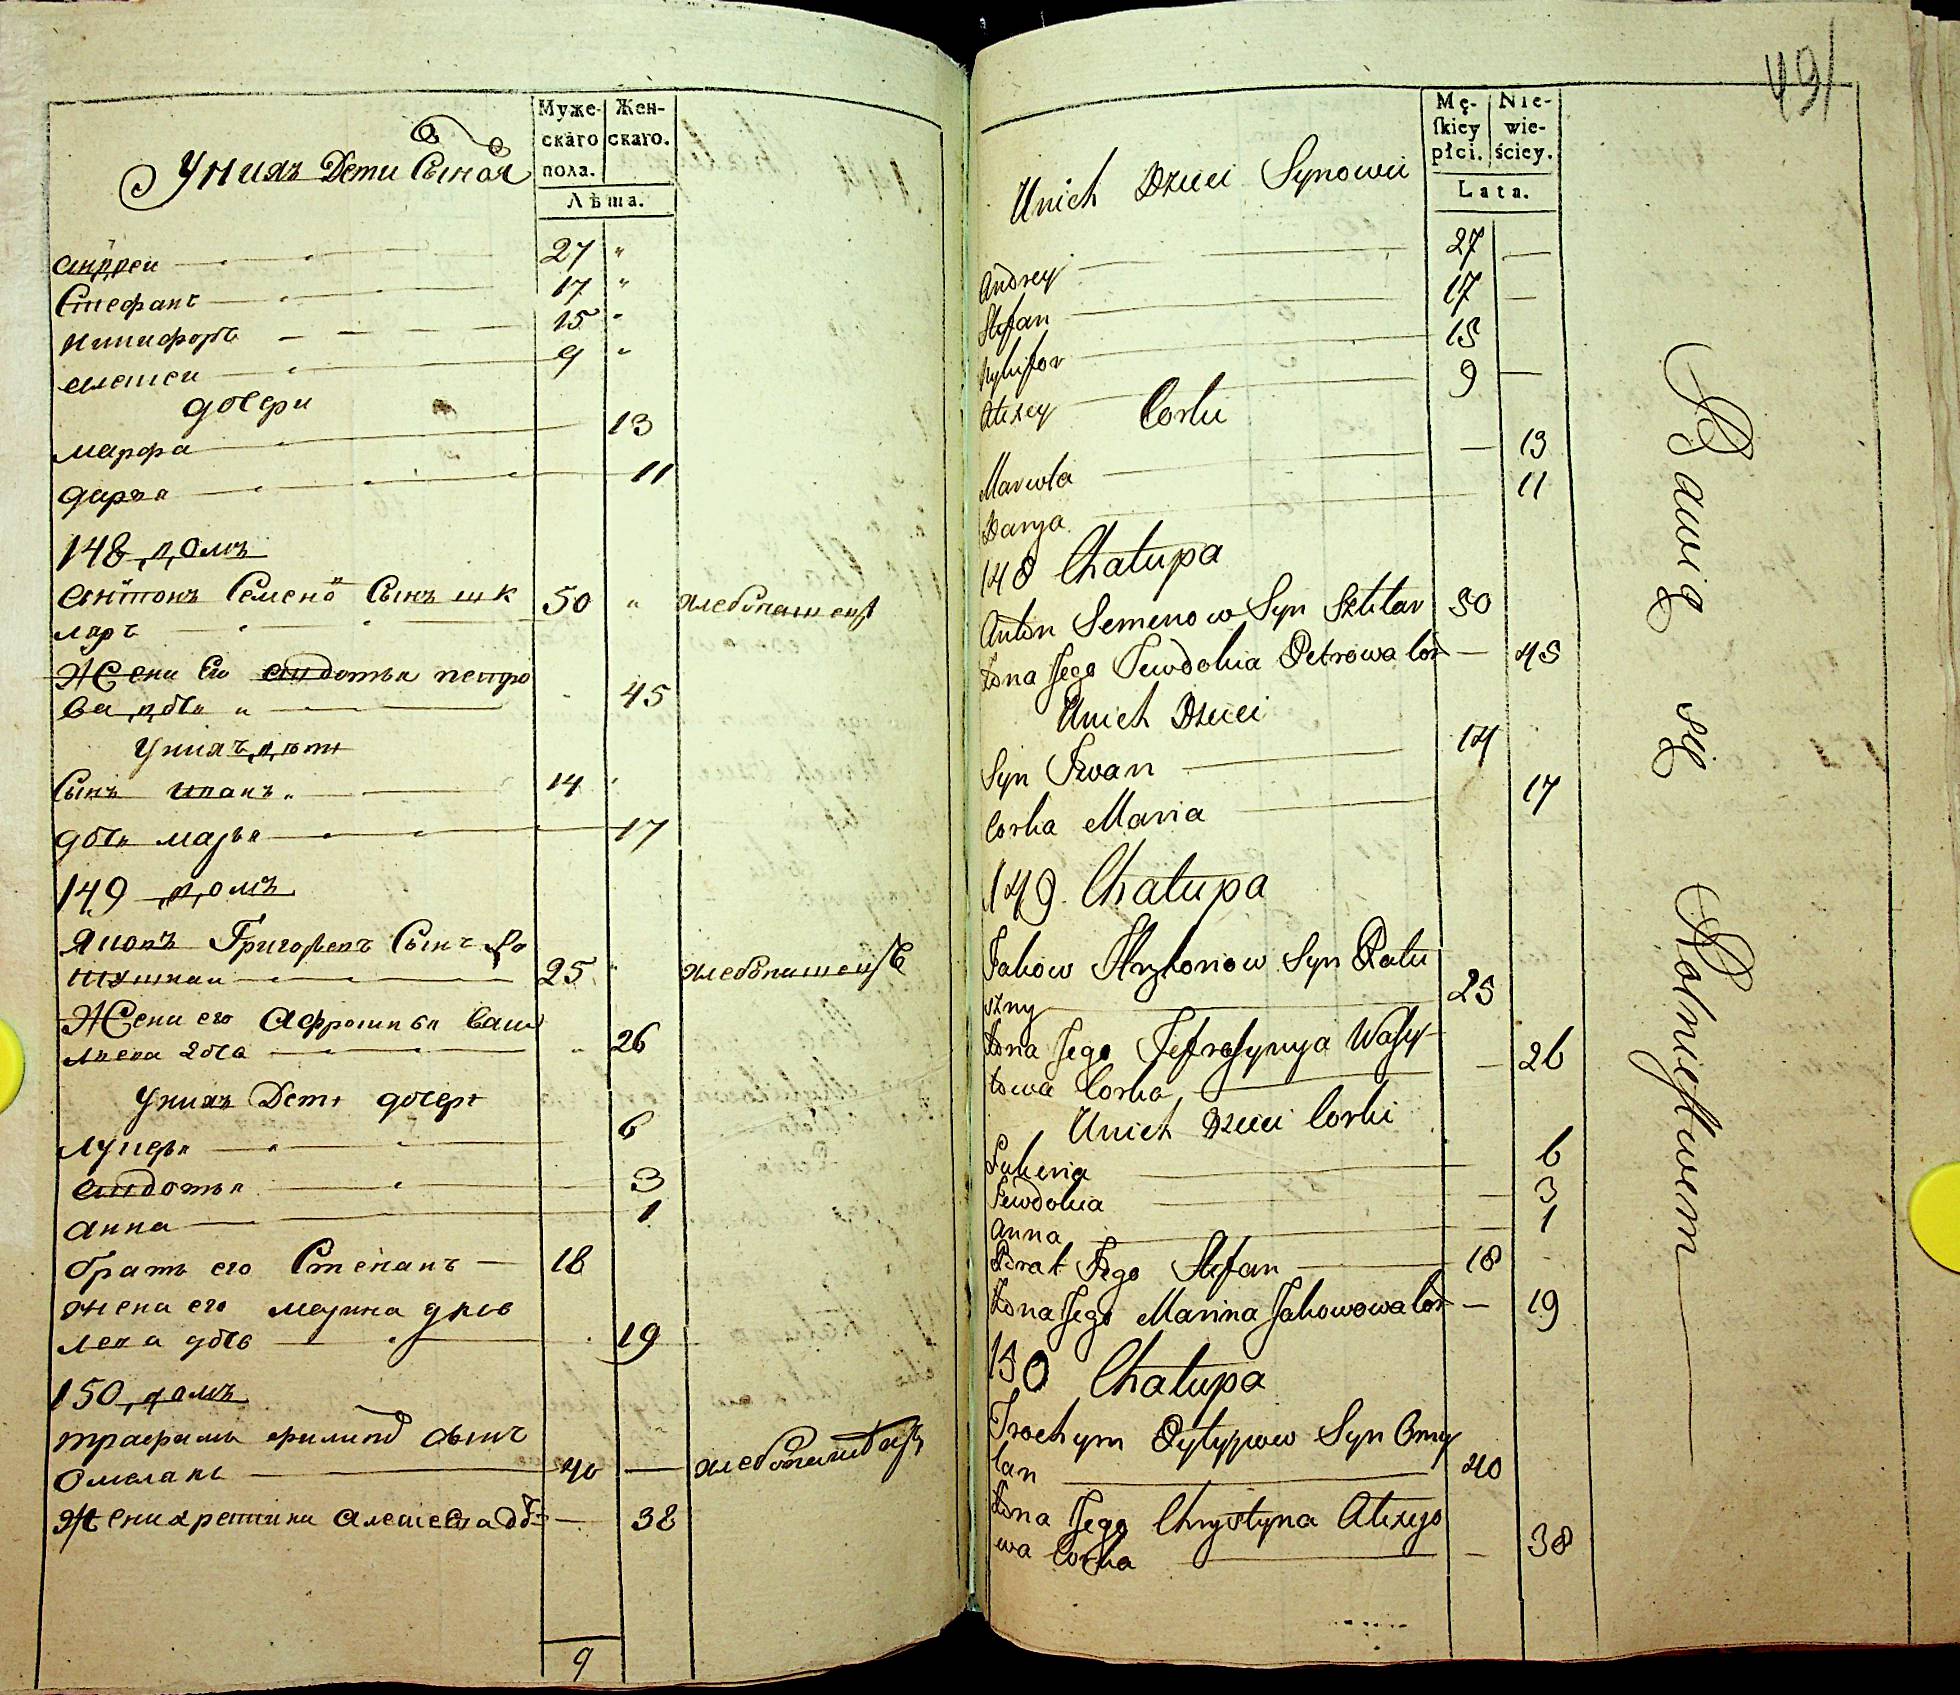 Муже-
скаго
пола.
Жен-
скаго.
Лѣта.
Унихъ Дети Сынов
андреи 27 "
Стефанъ 17 "
никифоръ 15 "
алеѯеи 9 "
дочери
марфа 13
дарья 11
148 домъ
антонъ Семеновъ Сынъ шк 50 " хлебопашецъ
ляръ
Жена Его авдотья петро
ва дочь " 45
Унихъ дети
Сынъ иванъ 14
дочь марья 17
149 домъ
Яковъ Григорьевъ Сынъ Ра
25 " хлебопашецъ
Жена его Афросинья васи
льева дочь 26
Унихъ Дети дочери
лукерья 6
авдотья 3
анна 1
братъ его Степанъ 18
жена его марина яков
лева дочь 19
150 домъ
трафимъ филипов сынъ
Омелянъ 40 — хлебопашецъ
Жена хрестина алексева доч 38
9
491
Mę-
ſkiey
płci.
Nie-
wie-
ściey.
Lata.
Unich Dzieci Synowie
Andrey 27 —
Stefan 17 —
Nykifor 15
Alexey 9 —
Corki
Marwta — 13
Darya 11
148 Chałupa
Anton Semenow Syn Szklar 50
Żona Jego Jewdokia Petrowa Cór — 45
Unich Dzieci
Syn Iwan 14
Corka Maria 17
149 Chałupa
Jakow Hryhoriow Syn Ratu
szny 25
Żona Jego Jefrosynya Wasy-
łowa Corka — 26
Unich Dzieci Corki
Łukeria 6
Jewdokia — 3
Anna — 1
Brat Jego Stefan 18
Żona Jego Marina Jakowowa Cór — 19
150 Chałupa
Trochym Pylypow Syn Omy
lan 40
Żona Jego Chrystyna Alexyo
wa Corka — 38
Bawią się Rolnictwem